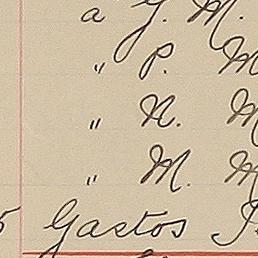 a G. M.
" P. M
" N. M
" M. M
5 Gastos